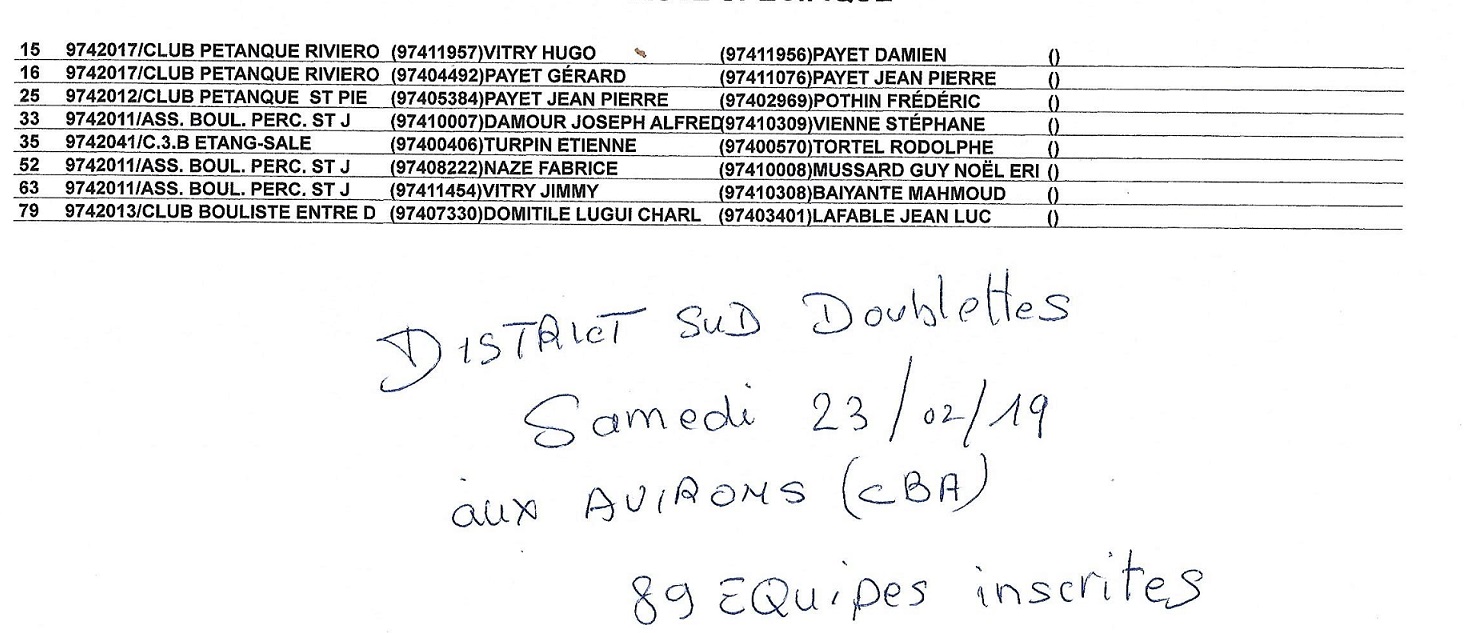 15 9742017/CLUB PETANQUE RIVIERO (97411957)VITRY HUGO (97411956)PAYET DAMIEN ()
16 9742017/CLUB PETANQUE RIVIERO (97404492)PAYET GÉRARD (97411076)PAYET JEAN PIERRE ()
25 9742012/CLUB PETANQUE ST PIE (97405384)PAYET JEAN PIERRE (97402969)POTHIN FRÉDÉRIC ()
33 9742011/ASS. BOUL. PERC. ST J (97410007)DAMOUR JOSEPH ALFRED(97410309)VIENNE STÉPHANE ()
35 9742041/C.3.B ETANG-SALE (97400406)TURPIN ETIENNE (97400570)TORTEL RODOLPHE ()
52 9742011/ASS. BOUL. PERC. ST J (97408222)NAZE FABRICE (97410008)MUSSARD GUY NOËL ERI ()
63 9742011/ASS. BOUL. PERC. ST J (97411454)VITRY JIMMY (97410308)BAIYANTE MAHMOUD ()
79 9742013/CLUB BOULISTE ENTRE D (97407330)DOMITILE LUGUI CHARL (97403401)LAFABLE JEAN LUC ()
DISTRICT SUD Doublettes
Samedi 23/02/19
aux AVIRONS (CBA)
89 EQuipes inscrites